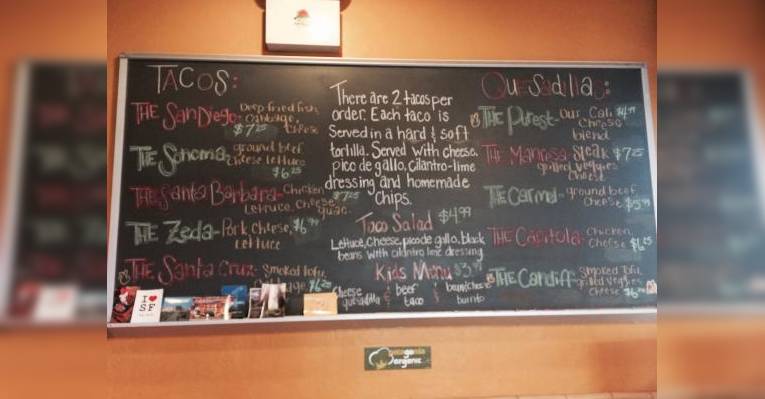 TACOS:
THE San Diego- Deep fried fish,
Cabbage,
$7.25 cheese
THE Sonoma- ground beef
cheese lettuce
$6.25
THE Santa Barbara- Chicken
Lettuce, cheese, $7.25
guac.
THE Zeda- Pork, Cheese, $6.
Lettuce
THE Santa Cruz- Smoked Tofu,
$6.25
There are 2 tacos per
order. Each taco is
Served in a hard & soft
tortilla. Served with cheese,
pico de gallo, cilantro-lime
dressing and homemade
chips.
Taco Salad $4.99
Lettuce, Cheese, pico de gallo, black
beans with cilantro lime dressing
Kids Menu $3.99
Cheese & beef & bean/cheese
quesadilla taco burrito
Quesadillas:
THE Purest- Our Cali $4.99
Cheese
blend
THE Mariposa- Steak $7.25
grilled veggies
Cheese
THE Carmel- ground beef
Cheese $5.99
THE Capitola- Chicken,
Cheese $6.25
THE Cardiff- Smoked Tofu,
grilled veggies
Cheese $6.
I ♥
SF
go
organic